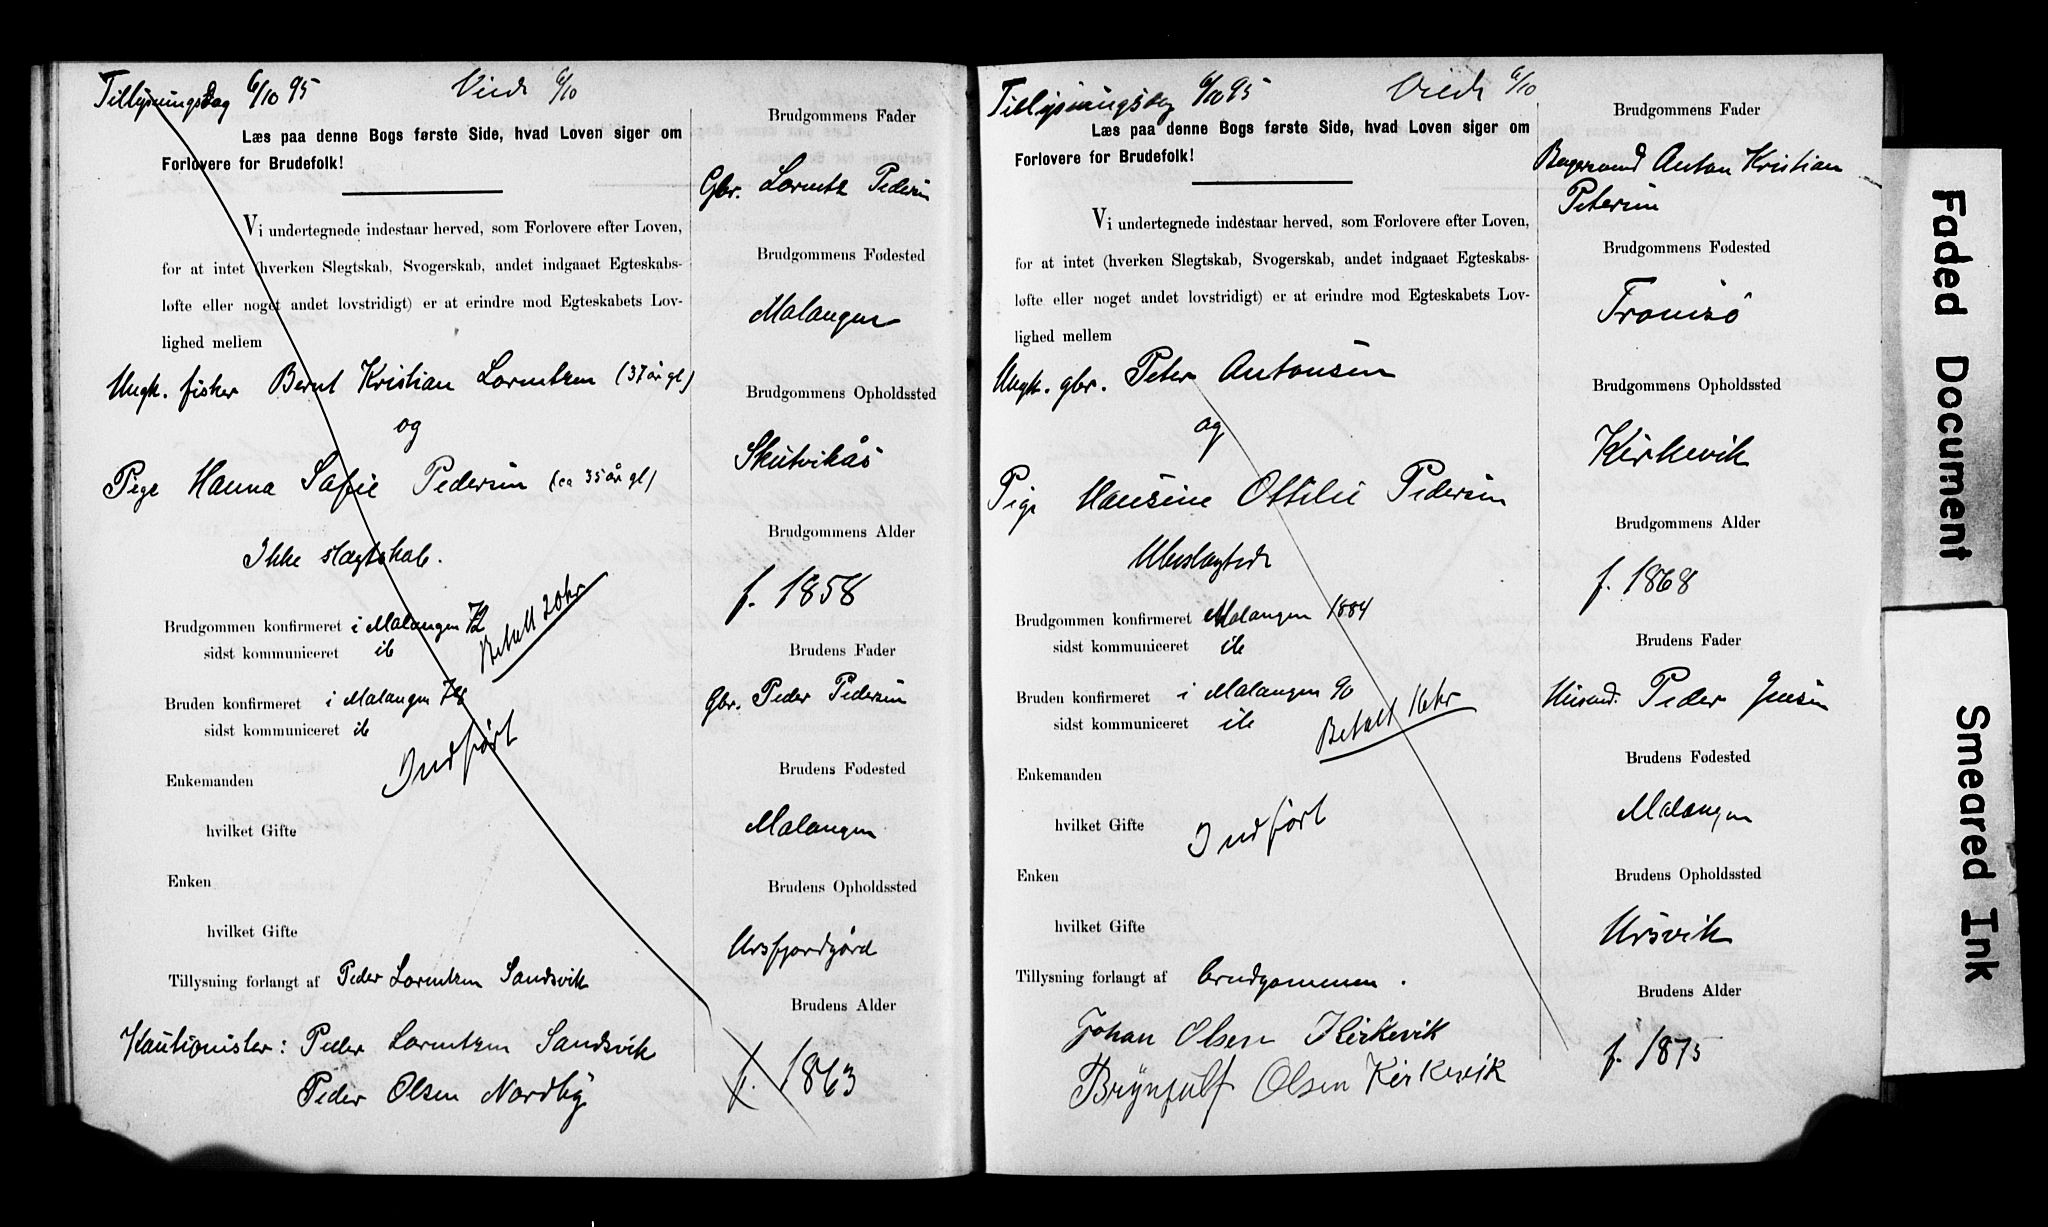 Tillysningsdag 6/10 95 Viede 6/10
Læs paa denne Bogs første Side, hvad Loven siger om
Forlovere for Brudefolk!
Vi undertegnede indestaar herved, som Forlovere efter Loven,
for at intet (hverken Slegtskab, Svogerskab, andet indgaaet Egteskabs-
løfte eller noget andet lovstridigt) er at erindre mod Egteskabets Lov-
lighed mellem
Ungk. fisker Bernt Kristian Lorentzen (37 år gl)
og
Pige Hanna Sofie Pedersen (ca 35 år gl)
Ikke slægtskab.
Betalt 20 kr
Brudgommen konfirmeret i Malangen 72
sidst kommuniceret ib
Bruden konfirmeret i Malangen 78
sidst kommuniceret ib
Indført
Enkemanden
hvilket Gifte
Enken
hvilket Gifte
Tillysning forlangt af Peder Lorentzen Sandsvik
Kautionister: Peder Lorentzen Sandsvik
Peder Olsen Nordby
Brudgommens Fader
Gbr. Lorentz Pedersen
Brudgommens Fødested
Malangen
Brudgommens Opholdssted
Skutvikås
Brudgommens Alder
f. 1858
Brudens Fader
Gbr. Peder Pedersen
Brudens Fødested
Malangen
Brudens Opholdssted
Ursfjordgård
Brudens Alder
f. 1863
Tillysningsdag 6/10 95 Viede 6/10
Læs paa denne Bogs første Side, hvad Loven siger om
Forlovere for Brudefolk!
Vi undertegnede indestaar herved, som Forlovere efter Loven,
for at intet (hverken Slegtskab, Svogerskab, andet indgaaet Egteskabs-
løfte eller noget andet lovstridigt) er at erindre mod Egteskabets Lov-
lighed mellem
Ungk. gbr. Peter Antonsen
og
Pige Hansine Ottilie Pedersen
Ubeslægtede
Brudgommen konfirmeret Malangen 1884
sidst kommuniceret ib
Bruden konfirmeret i Malangen 90
sidst kommuniceret ib
Betalt 16 kr
Enkemanden
hvilket Gifte
Indført
Enken
hvilket Gifte
Tillysning forlangt af brudgommen.
Johan Olsen Kirkevik
Brynjulf Olsen Kirkevik
Brudgommens Fader
Anton Kristian
Petersen
Brudgommens Fødested
Tromsö
Brudgommens Opholdssted
Kirkevik
Brudgommens Alder
f. 1868
Brudens Fader
Husmd. Peder Jensen
Brudens Fødested
Malangen
Brudens Opholdssted
Ursvik
Brudens Alder
f. 1875
Faded Document
Smeared Ink